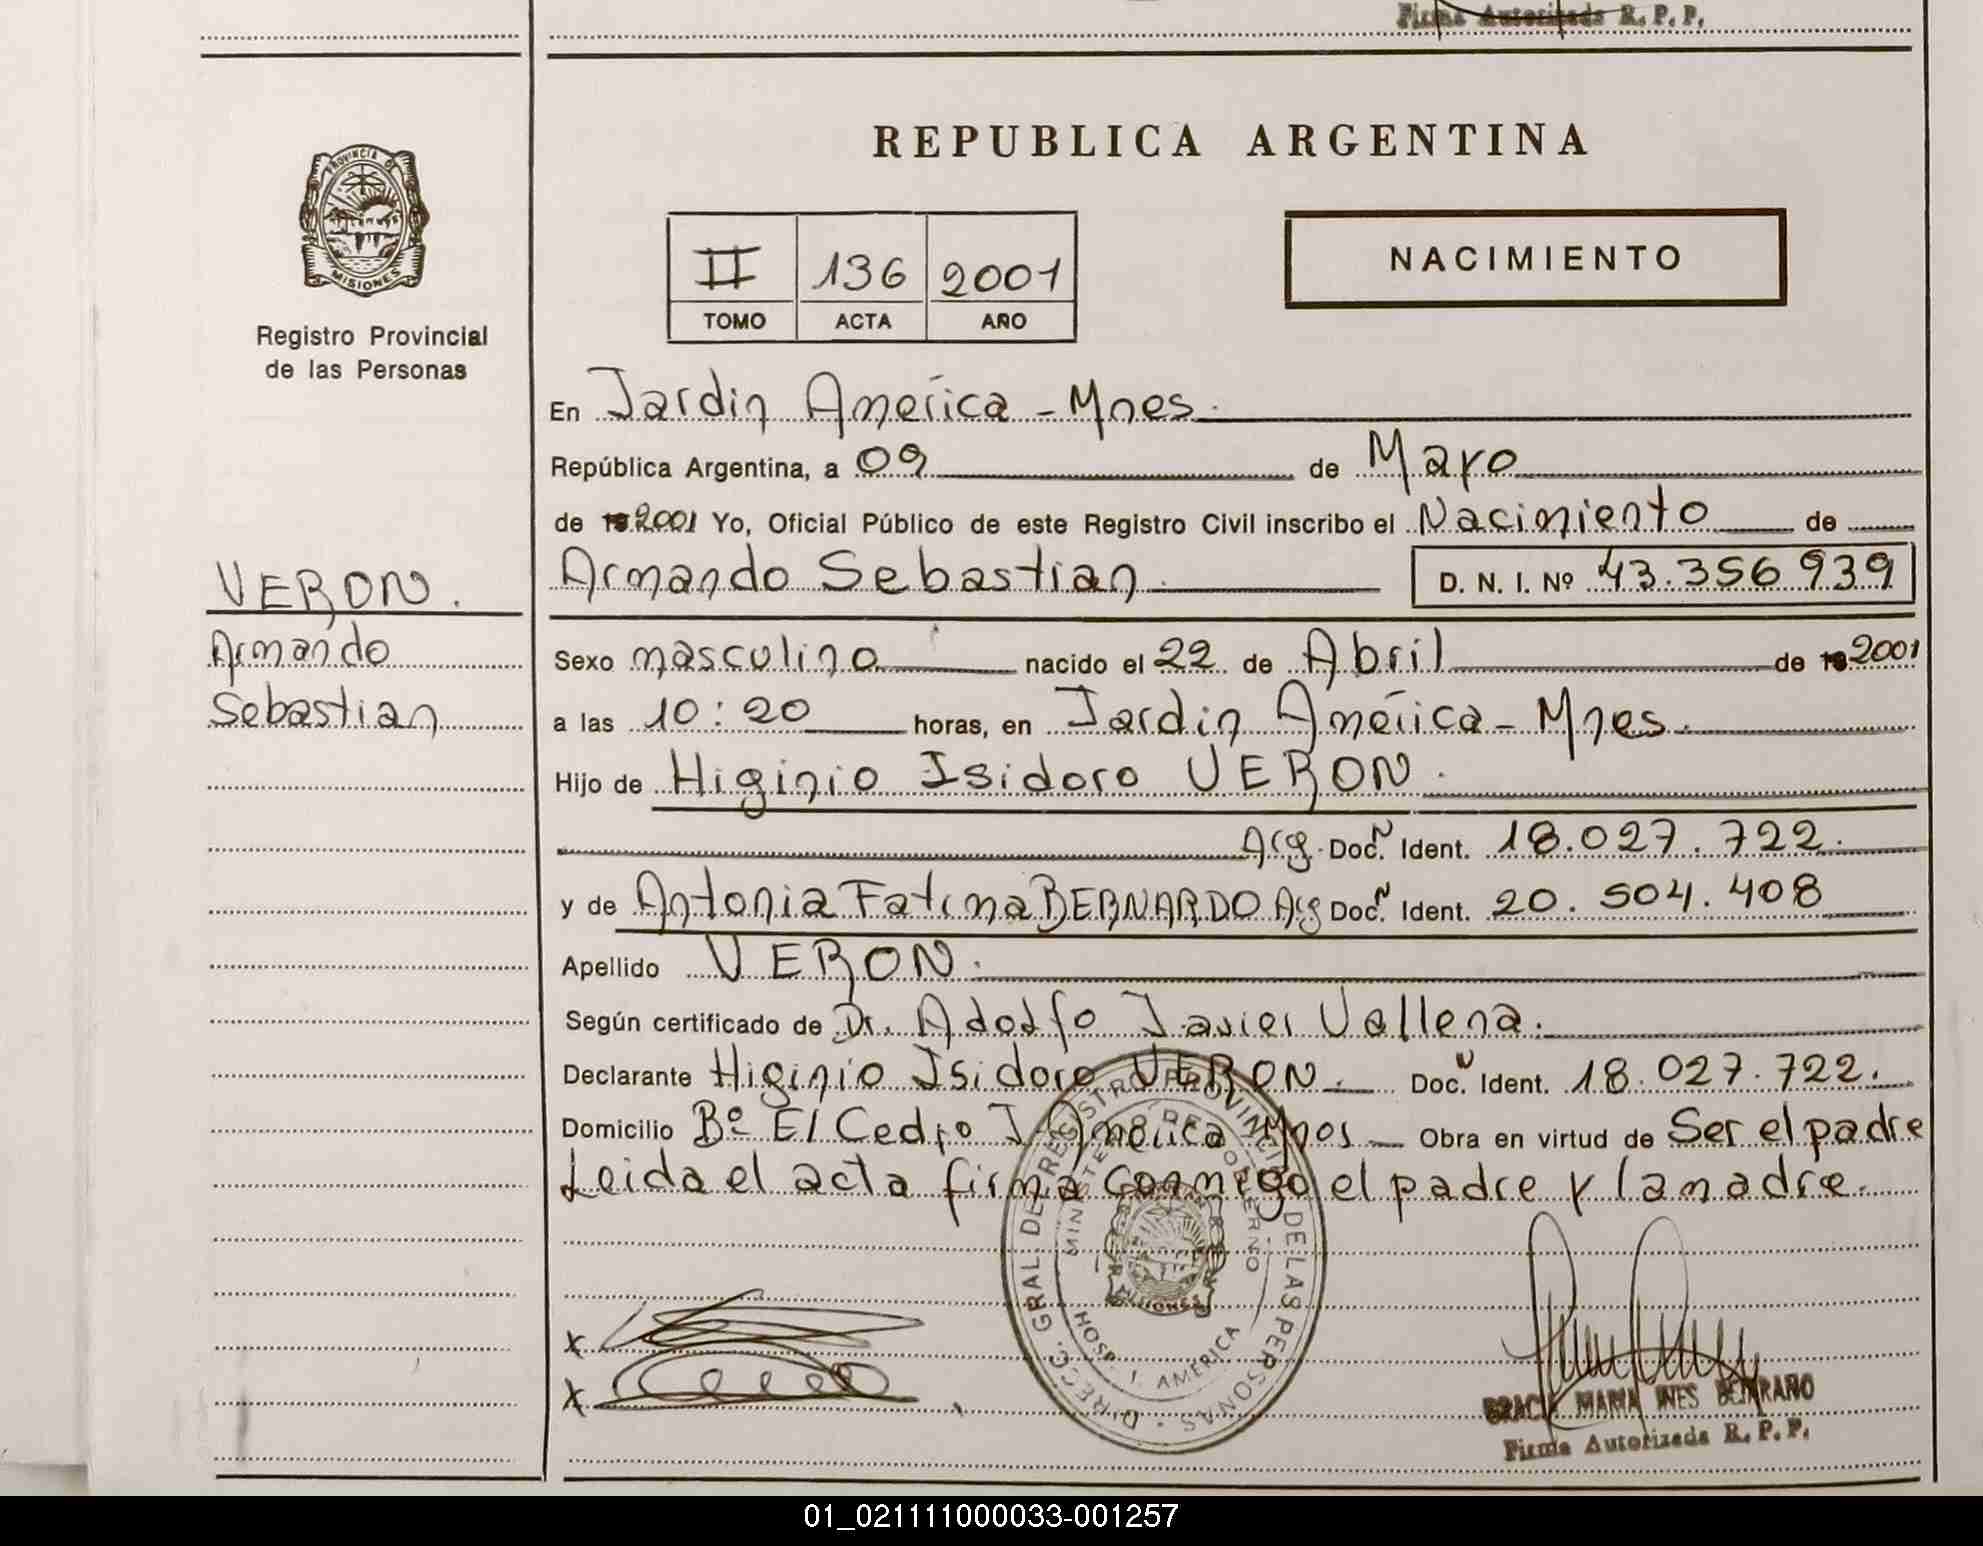 Firma Autorizada R. P. P.
PROVINCIA DE
MISIONES
Registro Provincial
de las Personas
VERON.
Armando
Sebastian
REPUBLICA ARGENTINA
II 136 2001
TOMO ACTA AÑO
NACIMIENTO
En Jardin América - Mnes.
República Argentina, a 09 de Mayo
de 19 2001 Yo, Oficial Público de este Registro Civil inscribo el Nacimiento de
Armando Sebastian D. N. I. Nº 43.356.939
Sexo masculino nacido el 22 de Abril de 19 2001
a las 10:20 horas, en Jardin América - Mnes.
Hijo de Higinio Isidoro VERON.
Arg. Doc. N Ident. 18.027.722.
y de Antonia Fatima BERNARDO Arg Doc. N Ident. 20.504.408
Apellido VERON.
Según certificado de Dr. Adolfo Javier Vallena.
Declarante Higinio Isidoro VERON. Doc. N Ident. 18.027.722.
Domicilio Bº El Cedro J. América Mnes Obra en virtud de Ser el padre
Leida el acta firma conmigo el padre y la madre.
DIRECC. GRAL DE REGISTRO PROVINCIAL DE LAS PERSONAS
MINISTERIO DE GOBIERNO
HOSP. J. AMERICA
MISIONES
x
x
MARIA INES
Firma Autorizada R. P. P.
01_021111000033-001257